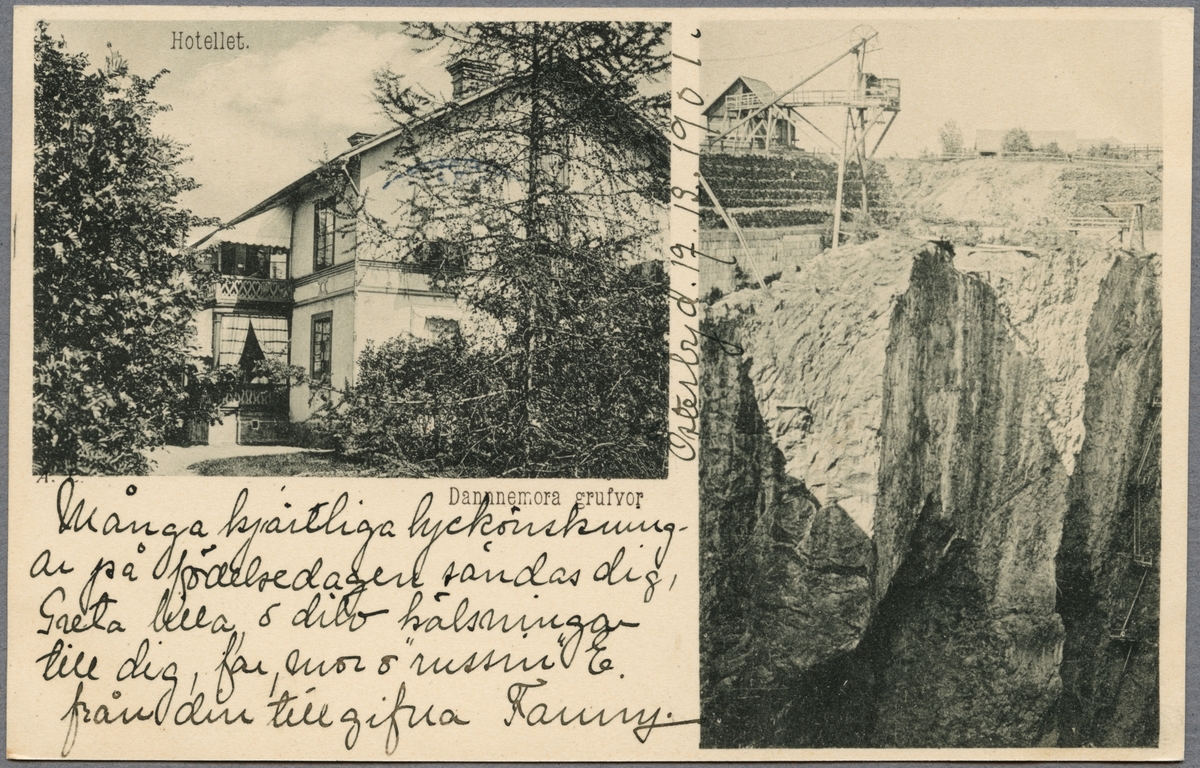 Hotellet.
Österby d. 19.13.1901.
Dannnemora grufvor
Många hjärtliga lyckönskning-
ar på födelsedagen sändas dig,
Greta lilla, o dito hälsningar
till dig, far, mor o "russin" E.
från din tillgifna Fanny.